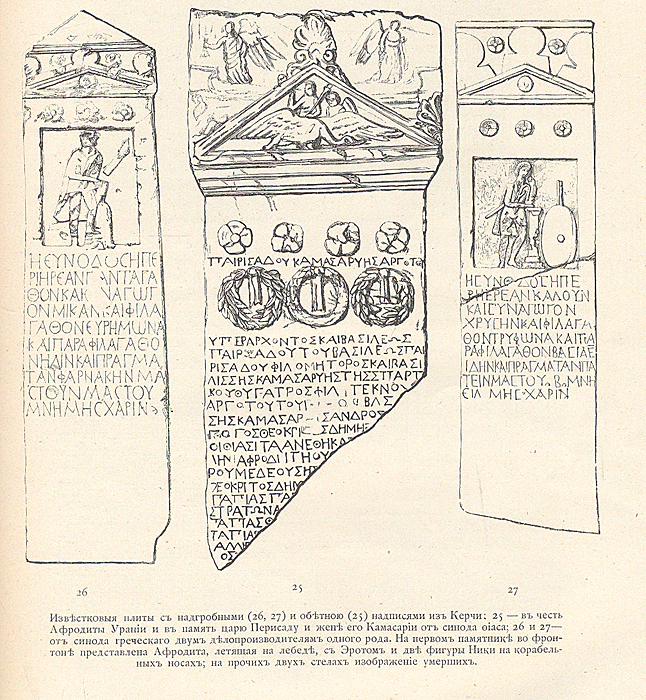 ΗΕΥΝΟΔΟCΗΠΕ
ΡΙΗΡΕΑΝΓ ΑΝΤΑΓΑ
ΘΟΝΚΑΙ ΝΑΓΩΓ
ΟΝΜΙΚΑΝΚΑΙΦΙΛΑ
ΓΑΘΟΝΕΥΡΗΜΩΝΑ
ΚΑΙΠΑΡΑΦΙΛΑΓΑΘΟ
ΝΗΔΙΝΚΑΙΠΡΑΓΜΑ
ΤΑΝΦΑΡΝΑΚΗΝΜΑ
CΤΟΥΝΜΑCΤΟΥ
ΜΝΗΜΗCΧΑΡΙΝ
ΠΑΙΡΙΣΑΔΟΥΚΑΜΑΣΑΡΥΗΣΑΡΓΟΤΟΥ
ΥΠΕΡΑΡΧΟΝΤΟΣΚΑΙΒΑΣΙΛΕΩΣ
ΠΑΙΡΙΣΑΔΟΥΤΟΥΒΑΣΙΛΕΩΣΠΑΙ
ΡΙΣΑΔΟΥΦΙΛΟΜΗΤΟΡΟΣΚΑΙΒΑΣΙ
ΛΙΣΣΗΣΚΑΜΑΣΑΡΥΗΣΤΗΣΣΠΑΡΤ
ΚΟΥΘΥΓΑΤΡΟΣΦΙΛ ΤΕΚΝΟΥ
ΑΡΓΟΤΟΥΤΟΥΙ Ο ΒΑΣ
ΣΗΣΚΑΜΑΣΑΡ ΣΑΝΔΡΟΣ
ΓΟΣΘΕΟΚΡΙ ΣΔΗΜΗ
ΟΙΘΙΑΣΙΤΑΙΑΝΕΘΗΚΑ
ΑΦΡΟΔΙΤΗΙΟΥ
ΡΟΥΜΕΔΕΟΥΣΗ
ΕΟΚΡΙΤΟΣΔΗΜ
ΠΑΠΙΑΣΠΑ
ΣΤΡΑΤΩΝΑ
ΑΠΑΣΟ
ΠΑΠΙΑ
ΑΜΙ
ΟΣ
ΗCΥΝΟΔΟCΗΠΕ
ΡΙΙΕΡΕΑΝΚΑΛΟΥΝ
ΚΑΙCΥΝΑΓΩΓΟΝ
ΧΡΥCΗΝΚΑΙΦΙΛΑΓΑ
ΘΟΝΤΡΥΦΩΝΑΚΑΙΠΑ
ΡΑΦΙΛΑΓΑΘΟΝΒΑCΙΛΕ
ΙΔΗΝΚΑΙΠΡΑΓΜΑΤΑΝΠΑ
ΠΕΙΝΜΑCΤΟΥ ΜΝΗ
ΜΗCΧΑΡΙΝ
26
25
27
Извѣстковыя плиты съ надгробными (26, 27) и обѣтною (25) надписями изъ Керчи; 25 — въ честь
Афродиты Ураніи и въ память царю Перисаду и женѣ его Камасаріи отъ синода ѳіаса; 26 и 27—
отъ синода греческаго двумъ дѣлопроизводителямъ одного рода. На первомъ памятникѣ во фрон-
тонѣ представлена Афродита, летящая на лебедѣ, съ Эротомъ и двѣ фигуры Ники на корабель-
ныхъ носахъ; на прочихъ двухъ стелахъ изображеніе умершихъ.